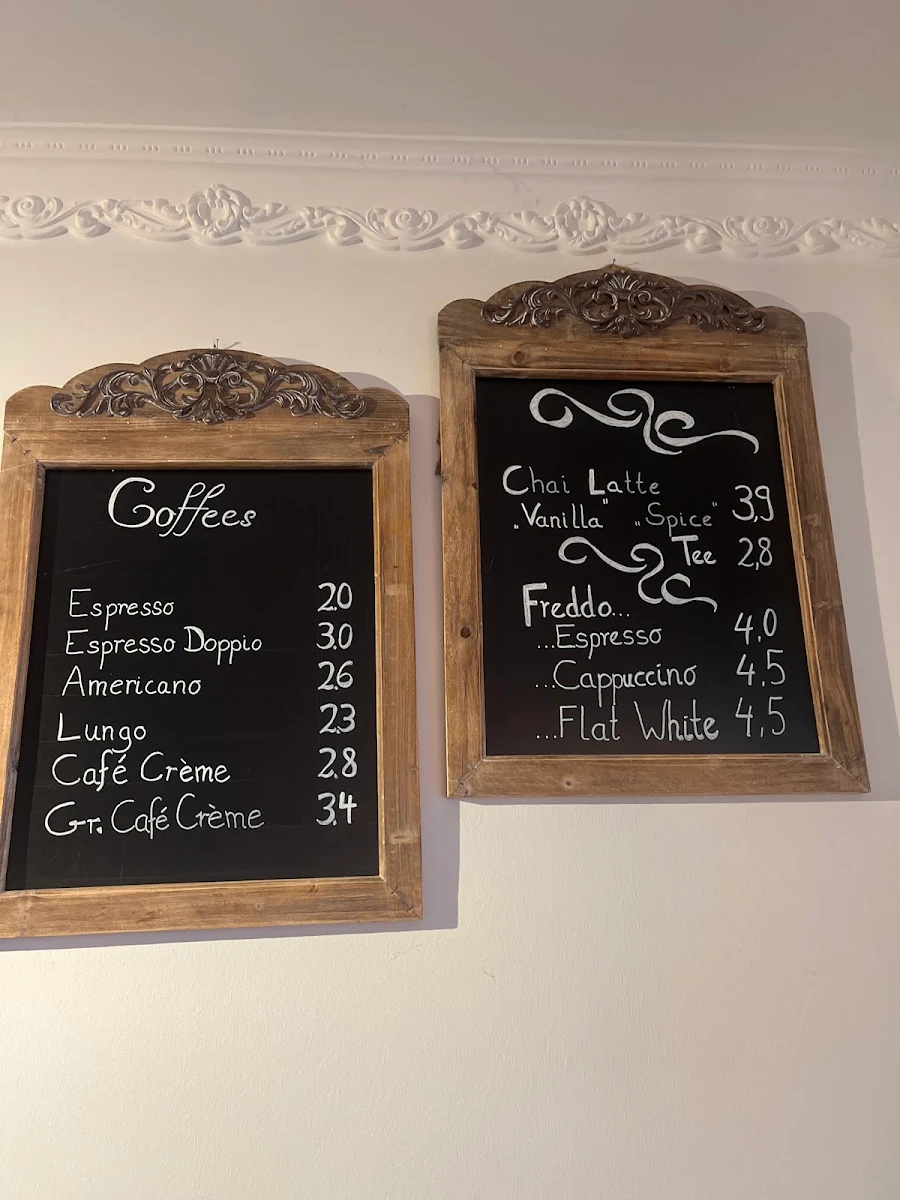 Coffees
Espresso 2.0
Espresso Doppio 3.0
Americano 2.6
Lungo 2.3
Café Crème 2.8
Gr. Café Crème 3.4
Chai Latte
„Vanilla" „Spice" 3,9
Tee 2,8
Freddo...
...Espresso 4,0
...Cappuccino 4,5
...Flat White 4,5